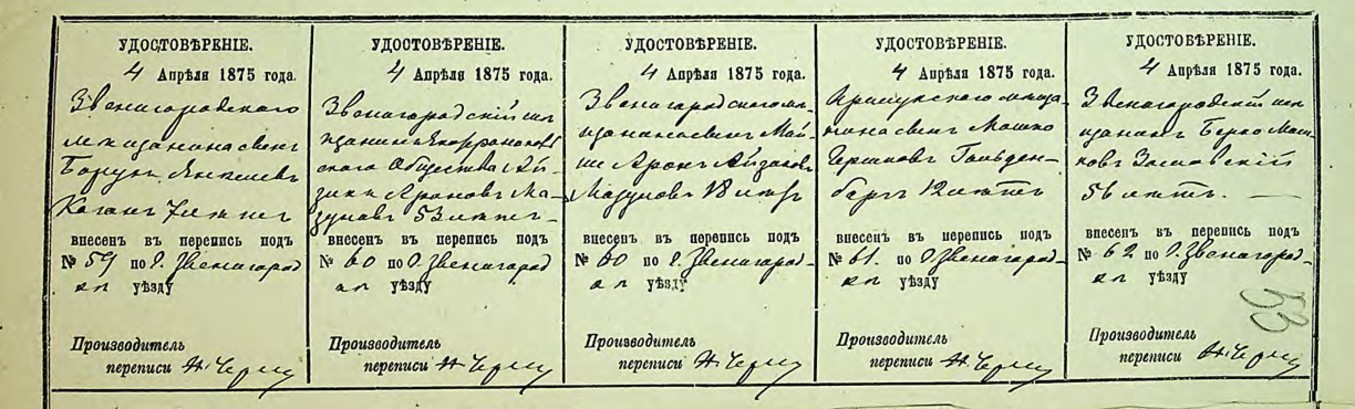 УДОСТОВѢРЕНІЕ.
4 Апрѣля 1875 года.
Звенигородскаго
мещанина сынъ
Борухъ Янкелевъ
Каганъ 7 летъ
внесенъ въ перепись подъ
№ 59 по г. Звенигород
ка уѣзду
Производитель
переписи
УДОСТОВѢРЕНІЕ.
4 Апрѣля 1875 года.
Звенигородскій ме
щанинъ
скаго Общества Ай-
зикъ Ароновъ Ма-
зуновъ 53 летъ
внесенъ въ перепись подъ
№ 60 по г. Звенигород
ка уѣзду
Производитель
переписи
УДОСТОВѢРЕНІЕ.
4 Апрѣля 1875 года.
Звенигородскаго ме-
щанина сынъ Май-
Аронъ Айзиковъ
Мазуновъ 18 летъ
внесенъ въ перепись подъ
№ 60 по г. Звенигород-
ка уѣзду
Производитель
переписи
УДОСТОВѢРЕНІЕ.
4 Апрѣля 1875 года.
меща-
нина сынъ Мошко
Гершковъ Гольден-
бергъ 12 летъ
внесенъ въ перепись подъ
№ 61. по г. Звенигород-
ка уѣзду
Производитель
переписи
УДОСТОВѢРЕНІЕ.
4 Апрѣля 1875 года.
Звенигородскій ме
щанинъ Берко Мош
ковъ Заславскій
56 летъ.
внесенъ въ перепись подъ
№ 62 по г. Звенигород-
ка уѣзду
Производитель
переписи